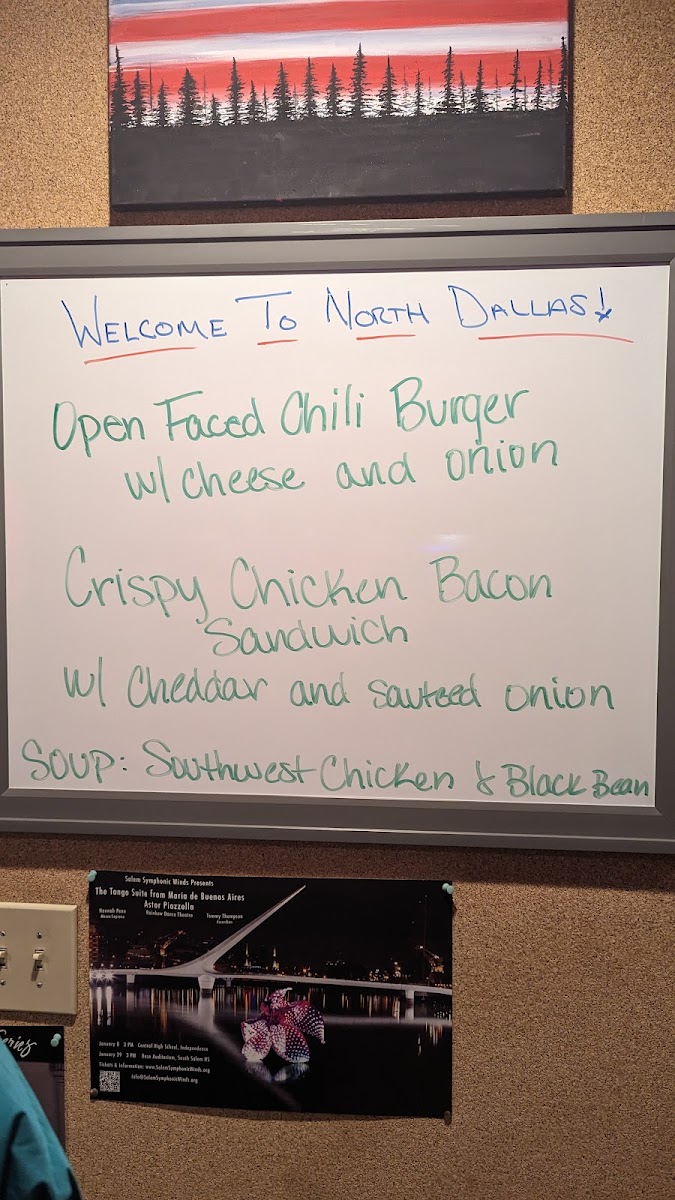 WELCOME TO NORTH DALLAS!
Open Faced Chili Burger
w/ cheese and onion
Crispy Chicken Bacon
Sandwich
w/ Cheddar and sauteed onion
SOUP: Southwest Chicken & Black Bean
Salem Symphonic Winds Presents
The Tango Suite from Maria de Buenos Aires
Astor Piazzolla
Rainbow Dance Theatre
Tommy Thompson
January 8 3 PM Central High School, Independence
January 29 3 PM Rose Auditorium, South Salem HS
Tickets & Information: www.SalemSymphonicWinds.org
info@SalemSymphonicWinds.org
Series